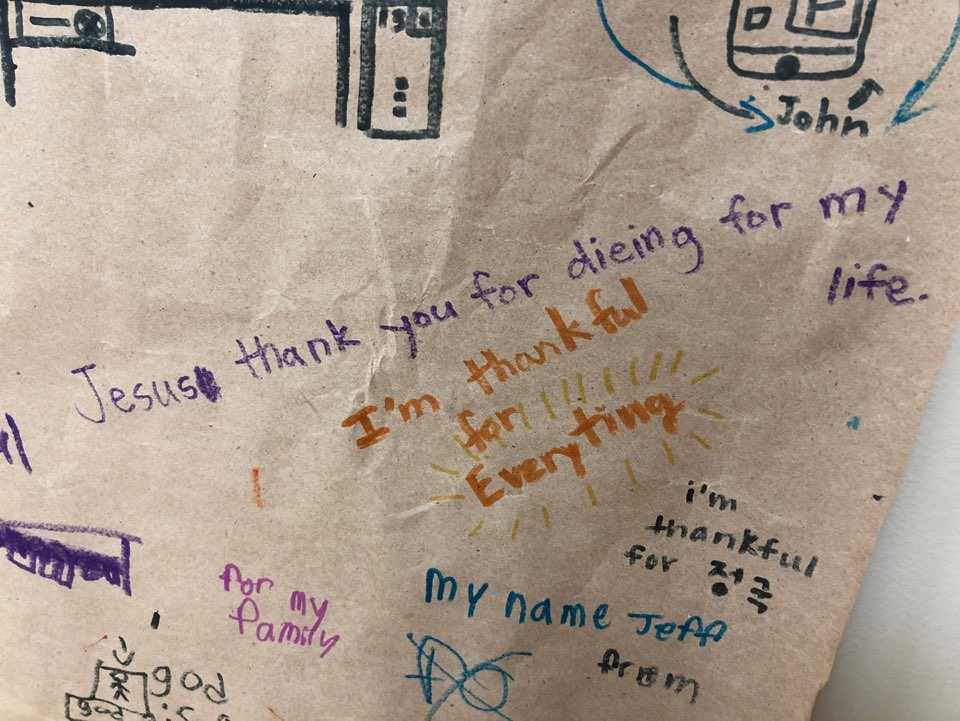 John
Jesus thank you for dieing for my
life.
I'm thankful
for
Everyting
i'm
thankful
for
for my
family
my name Jeff
from
god